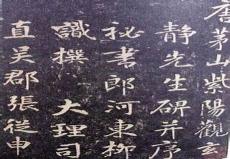 唐茅山紫陽觀玄
靜先生碑并序
秘書郎河東柳
識撰 大理司
直吳郡張從申